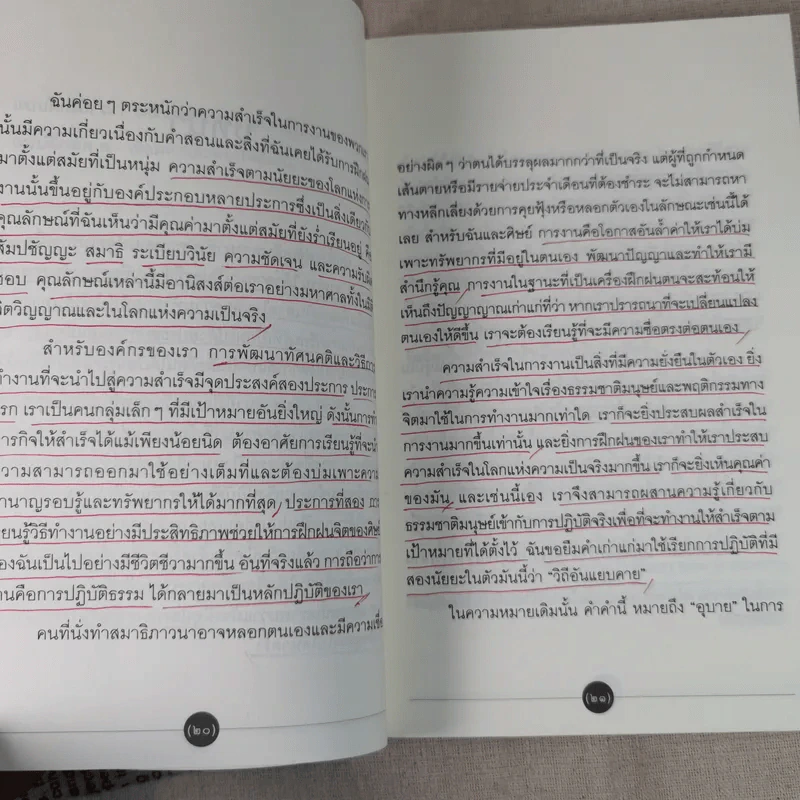 ฉันค่อย ๆ ตระหนักว่าความสำเร็จในการงานของพวกเรา
นั้นมีความเกี่ยวเนื่องกับคำสอนและสิ่งที่ฉันเคยได้รับการฝึกฝน
มาตั้งแต่สมัยที่เป็นหนุ่ม ความสำเร็จตามนัยยะของโลกแห่งการ
งานนั้นขึ้นอยู่กับองค์ประกอบหลายประการซึ่งเป็นสิ่งเดียวกับ
คุณลักษณ์ที่ฉันเห็นว่ามีคุณค่ามาตั้งแต่สมัยที่ยังร่ำเรียนอยู่ คือ
สัมปชัญญะ สมาธิ ระเบียบวินัย ความชัดเจน และความรับผิด
ชอบ คุณลักษณ์เหล่านี้มีอานิสงส์ต่อเราอย่างมหาศาลทั้งในมิติ
จิตวิญญาณและในโลกแห่งความเป็นจริง
สำหรับองค์กรของเรา การพัฒนาทัศนคติและวิธีการ
ทำงานที่จะนำไปสู่ความสำเร็จมีจุดประสงค์สองประการ ประการ
แรก เราเป็นคนกลุ่มเล็กๆ ที่มีเป้าหมายอันยิ่งใหญ่ ดังนั้นการทำ
ภารกิจให้สำเร็จได้แม้เพียงน้อยนิด ต้องอาศัยการเรียนรู้ที่จะนำ
ความสามารถออกมาใช้อย่างเต็มที่และต้องบ่มเพาะความ
ชำนาญรอบรู้และทรัพยากรให้ได้มากที่สุด ประการที่สอง การ
เรียนรู้วิธีทำงานอย่างมีประสิทธิภาพช่วยให้การฝึกฝนจิตของศิษย์
ของฉันเป็นไปอย่างมีชีวิตชีวามากขึ้น อันที่จริงแล้ว การถือว่าการ
งานคือการปฏิบัติธรรม ได้กลายมาเป็นหลักปฏิบัติของเรา
คนที่นั่งทำสมาธิภาวนาอาจหลอกตนเองและมีความเชื่อ
(๒๐)
อย่างผิดๆ ว่าตนได้บรรลุผลมากกว่าที่เป็นจริง แต่ผู้ที่ถูกกำหนด
เส้นตายหรือมีรายจ่ายประจำเดือนที่ต้องชำระ จะไม่สามารถหา
ทางหลีกเลี่ยงด้วยการคุยฟุ้งหรือหลอกตัวเองในลักษณะเช่นนี้ได้
เลย สำหรับฉันและศิษย์ การงานคือโอกาสอันล้ำค่าให้เราได้บ่ม
เพาะทรัพยากรที่มีอยู่ในตนเอง พัฒนาปัญญาและทำให้เรามี
สำนึกรู้คุณ การงานในฐานะที่เป็นเครื่องฝึกฝนตนจะสะท้อนให้
เห็นถึงปัญญาญาณเก่าแก่ที่ว่า หากเราปรารถนาที่จะเปลี่ยนแปลง
ตนเองให้ดีขึ้น เราจะต้องเรียนรู้ที่จะมีความซื่อตรงต่อตนเอง
ความสำเร็จในการงานเป็นสิ่งที่มีความยั่งยืนในตัวเอง ยิ่ง
เรานำความรู้ความเข้าใจเรื่องธรรมชาติมนุษย์และพฤติกรรมทาง
จิตมาใช้ในการทำงานมากเท่าใด เราก็จะยิ่งประสบผลสำเร็จใน
การงานมากขึ้นเท่านั้น และยิ่งการฝึกฝนของเราทำให้เราประสบ
ความสำเร็จในโลกแห่งความเป็นจริงมากขึ้น เราก็จะยิ่งเห็นคุณค่า
ของมัน และเช่นนี้เอง เราจึงสามารถผสานความรู้เกี่ยวกับ
ธรรมชาติมนุษย์เข้ากับการปฏิบัติจริงเพื่อที่จะทำงานให้สำเร็จตาม
เป้าหมายที่ได้ตั้งไว้ ฉันขอยืมคำเก่าแก่มาใช้เรียกการปฏิบัติที่มี
สองนัยยะในตัวมันนี้ว่า “วิถีอันแยบคาย”
ในความหมายเดิมนั้น คำคำนี้ หมายถึง “อุบาย” ในการ
(๒๑)